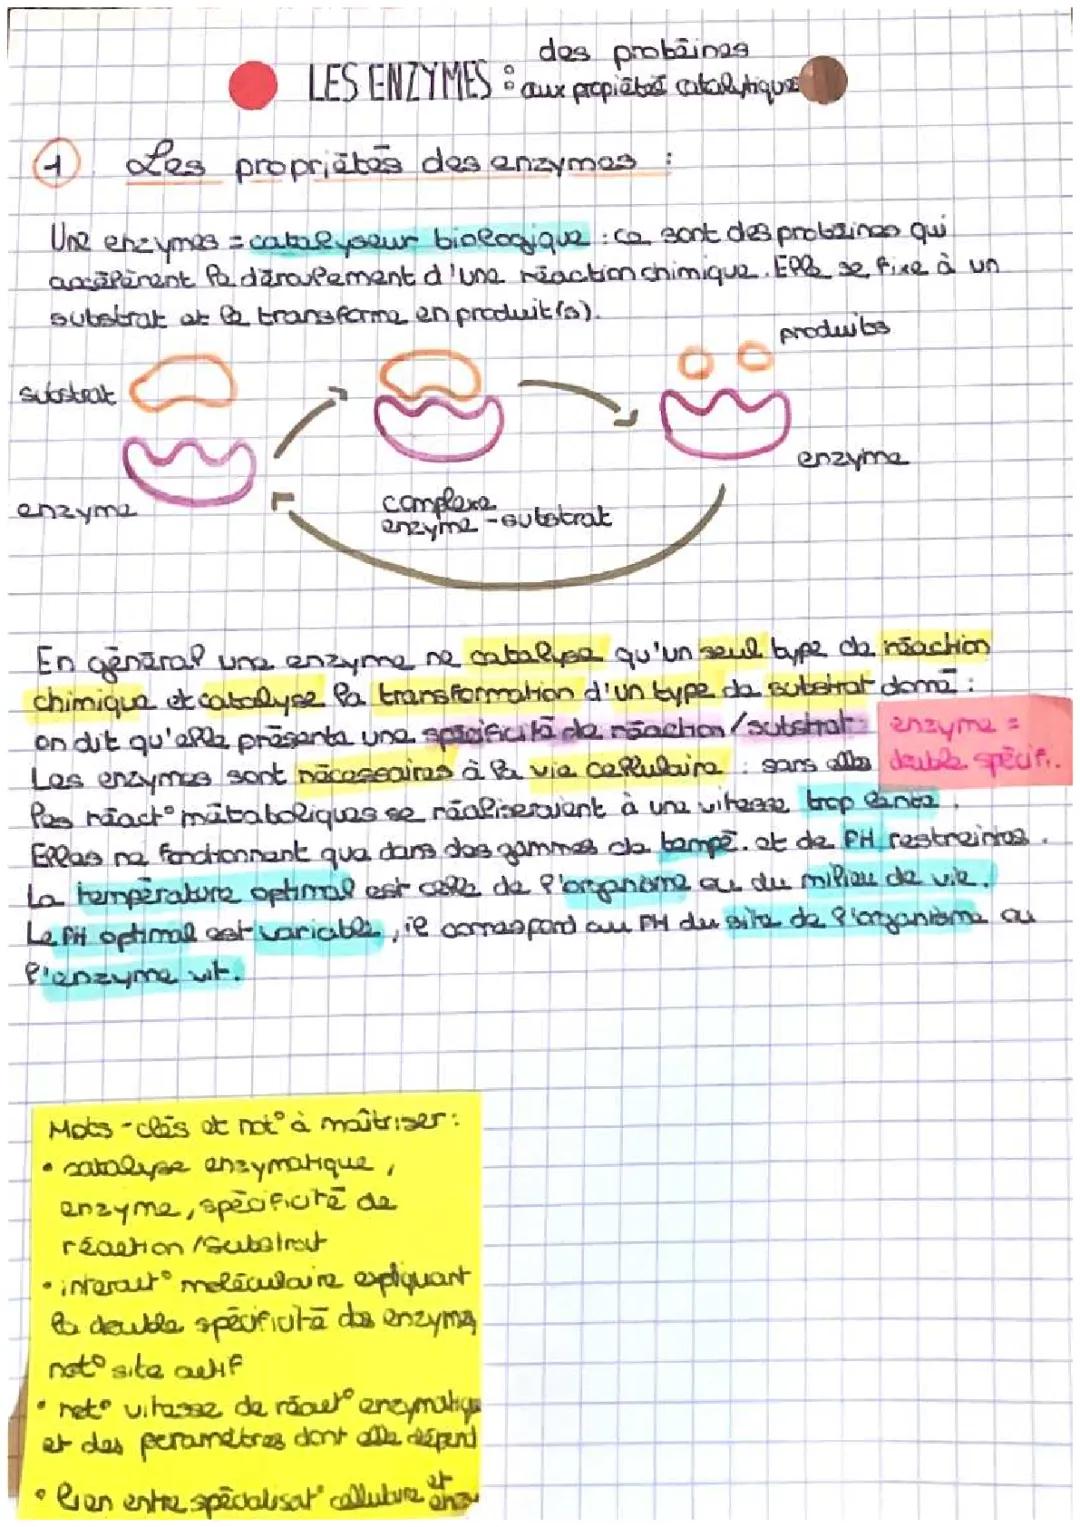 des protéines
LES ENZYMES : aux propiétés catalytiques
1 Les propriétés des enzymes :
Une enzymes = catalyseur biologique : ca sont des protéines qui
accélèrent le déroulement d'une réaction chimique. Elle se fixe à un
substrat et le transforme en produit(s).
produits
substrat
enzyme
enzyme
complexe
enzyme - substrat
En général une enzyme ne catalyse qu'un seul type de réaction
chimique et catalyse la transformation d'un type de substrat donné :
on dit qu'elle présente une spécificité de réaction / substrat
enzyme =
double spécifi.
Les enzymes sont nécessaires à la vie cellulaire : sans elles
les réact° métaboliques se réaliseraient à une vitesse trop lente.
Elles ne fonctionnent que dans des gammes de tempé. et de PH restreintes.
La température optimal est celle de l'organisme ou du milieu de vie.
Le PH optimal est variable, il correspond au PH du site de l'organisme ou
l'enzyme vit.
Mots-clés et not° à maîtriser :
• catalyse enzymatique,
enzyme, spécificité de
réaction / Substrat
• interact° moléculaire expliquant
la double spécificité des enzyme,
not° site actif
• not° vitesse de réact° enzymatique
et des paramètres dont elle dépend
• lien entre spécialisat° cellulaire et
enzy